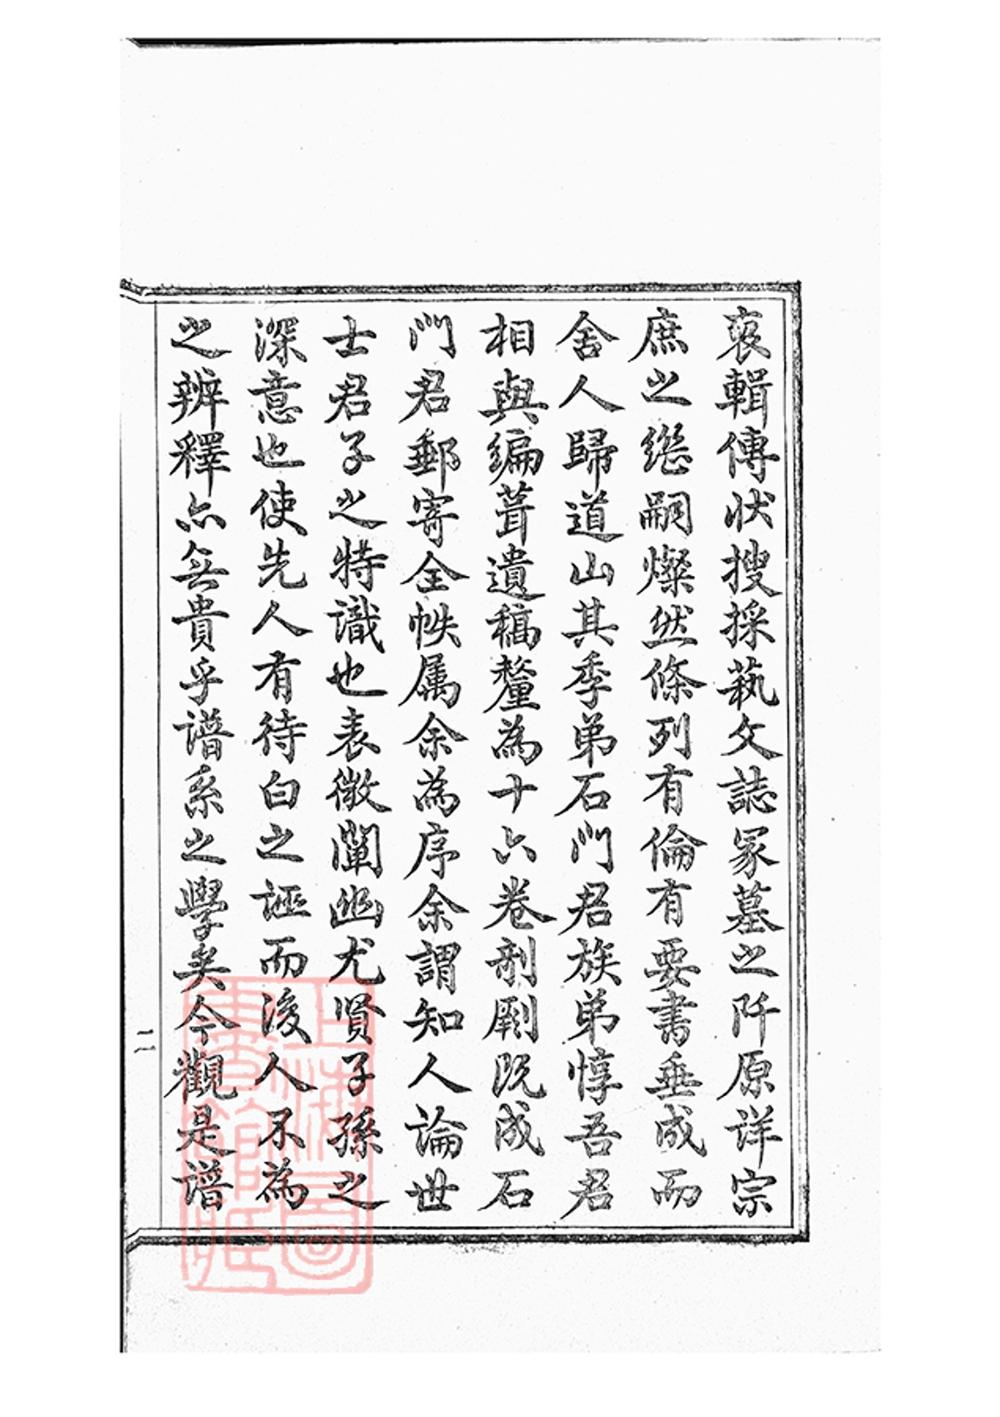 裒輯傳狀搜採藝文誌冢墓之阡原详宗
庶之継嗣燦然條列有倫有要書垂成而
舍人歸道山其季弟石门君族弟惇吾君
相與编葺遺稿釐為十六卷剞劂既成石
门君郵寄全帙属余為序余謂知人論世
士君子之特識也表微闡幽尤贤子孫之
深意也使先人有待白之誣而後人不為
之辨釋亦無貴乎譜系之學矣今觀是譜
二
上海圖書館藏